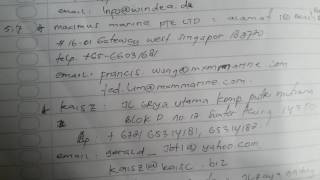 email: info@windea.de
5.7 * maximus marine PTE LTD : alamat 150 Beach
# 16-01 Gateway west singapor 189720
telp. +65-66031681
email: francis.wong@maxmarine.com
jed.lim@mammarine.com.
* kaisz : Jl Griya utama komp puri mutiara
Blok D no.12 sunter Agung 14350
telp + 6221 65314181, 65314182.
email: gerald_jbt1@yahoo.com
kaisz@kaisz.biz